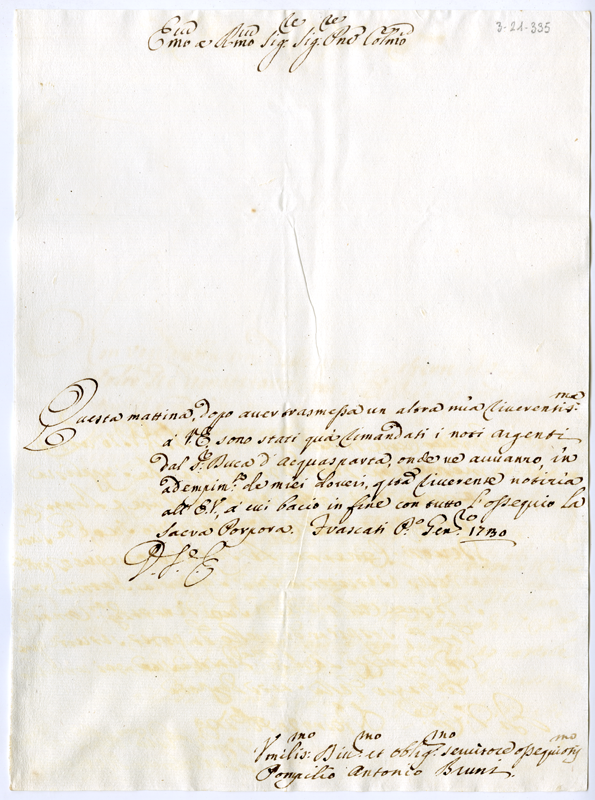 3-21-335
Em̃o e R.mo Sig.re Sig.re Pñe Col.mo
Questa mattina, dopo aver trasmessa un altra mia riverentis.ma
à V.E. sono stati quà rimandati i noti Argenti
dal S.r Duca d'Acquasparta, onde ne avvanzo, in
adempim.to de miei doveri, q̃ta riverente notizia
all' E.V., à cui bacio in fine con tutto l'ossequio la
Sacra Porpora. Frascati P.o Gen.ro 1730
D. V. E.
Vmilis.mo Div.mo et oblig.mo servitore ossequios.mo
Pompilio Antonio Bruni.